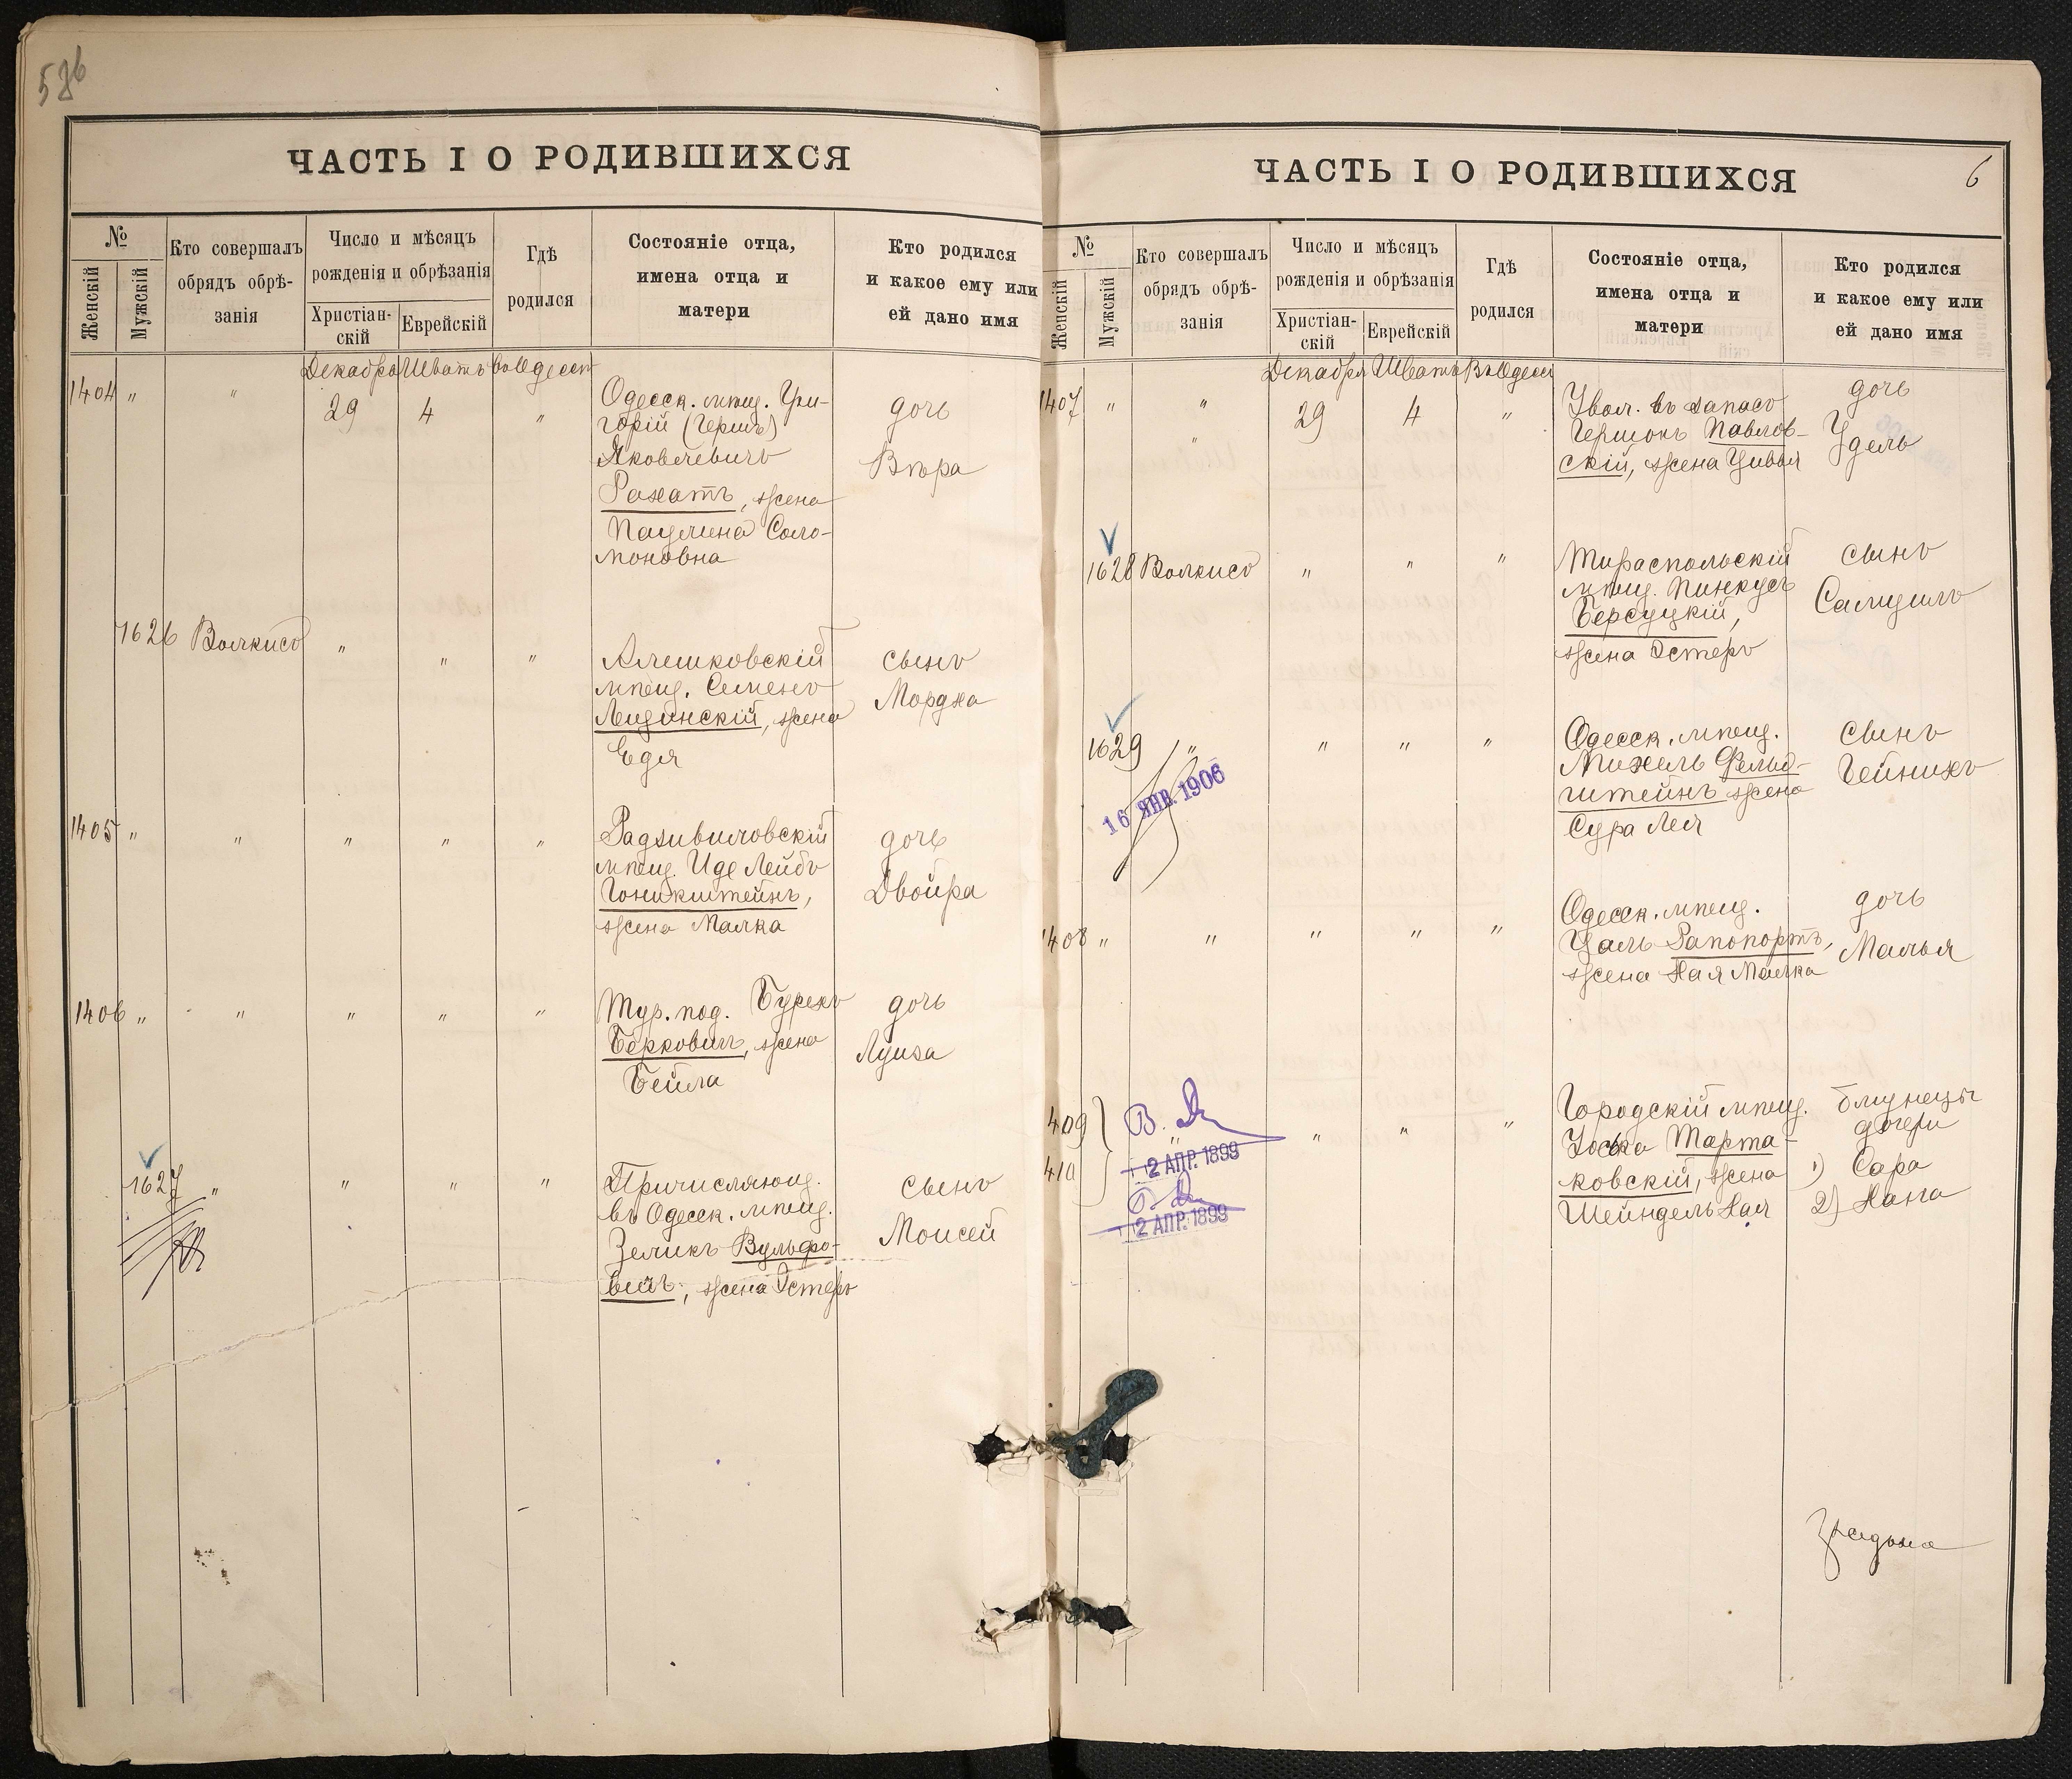 586
ЧАСТЬ I О РОДИВШИХСЯ
№
Женскій
Мужскій
Кто совершалъ
обрядъ обрѣ-
занія
Число и мѣсяцъ
рожденія и обрѣзанія
Христіан-
скій
Еврейскій
Гдѣ
родился
Состояніе отца,
имена отца и
матери
Кто родился
и какое ему или
ей дано имя
Декабря Шватъ въ Одессѣ
1404 " " 29 4 "
Одесск. мѣщ. Гри-
горій (Гершъ)
Яковлевичъ
Рахатъ, жена
Паулина Соло-
моновна
дочь
Вѣра
1626 Волкисъ " " "
Алешковскій
мѣщ. Семенъ
Лещинскій, жена
Едя
сынъ
Мордха
1405 " " " " "
Радзивиловскій
мѣщ. Иде Лейбъ
жена Малка
дочь
Двойра
1406 " " " " "
Тур. под. Бурехъ
Берковичъ, жена
Бейла
дочь
Луиза
1627 " " " "
Причисляющ.
въ Одесск. мѣщ.
Зеликъ Вульфо-
вичъ, жена Эстеръ
сынъ
Моисей
ЧАСТЬ I О РОДИВШИХСЯ
6
№
Женскій
Мужскій
Кто совершалъ
обрядъ обрѣ-
занія
Число и мѣсяцъ
рожденія и обрѣзанія
Христіан-
скій
Еврейскій
Гдѣ
родился
Состояніе отца,
имена отца и
матери
Кто родился
и какое ему или
ей дано имя
Декабря Шватъ Въ Одессѣ
1407 " " 29 4 "
Увол. въ запасъ
Гершонъ Павлов-
скій, жена Цивья
дочь
Удель
1628 Волкисъ " " "
Тираспольскій
мѣщ. Пинкусъ
Берсуцкій,
жена Эстеръ
сынъ
Самуилъ
1629 " " " "
16 ЯНВ. 1906
Одесск. мѣщ.
Михель Фельд-
штейнъ жена
Сура Лея
сынъ
Гейнихъ
1408 " " " " "
Одесск. мѣщ.
Цаль Рапопортъ,
жена Хая Малка
дочь
Малья
409
410
" " " "
2 АПР. 1899
2 АПР. 1899
Городскій мѣщ.
Іосько Марта-
ковскій, жена
Шейндель Хая
близнецы
дочери
1) Сара
2) Хана